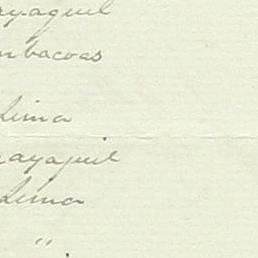 ayaquil
mbacoas
Lima
ayaquil
Lima
"